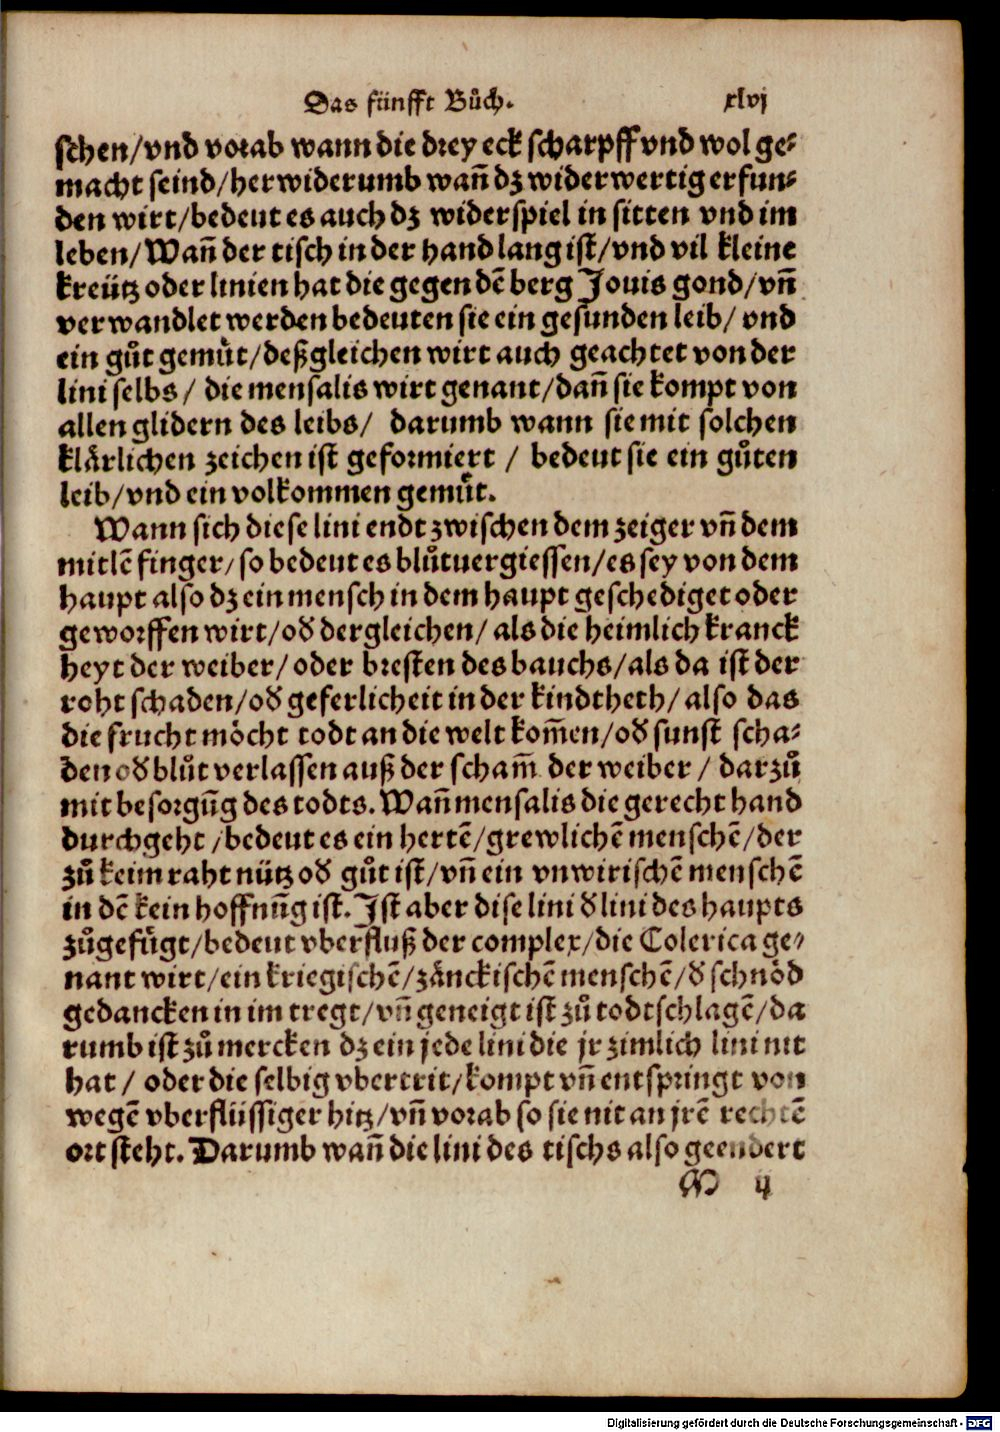 Das fünfft Bůch. xlvj
schen/vnd vorab wann die drey eck scharpff vnd wol ge⸗
macht seind/herwiderumb wañ dz widerwertig erfun⸗
den wirt/bedeut es auch dz widerspiel in sitten vnd im
leben/Wañ der tisch in der hand lang ist/vnd vil kleine
kreütz oder linien hat die gegen dẽ berg Jouis gond/vñ
verwandlet werden bedeuten sie ein gesunden leib/ vnd
ein gůt gemüt/deßgleichen wirt auch geachtet von der
lini selbs/ die mensalis wirt genant/dañ sie kompt von
allen glidern des leibs/ darumb wann sie mit solchen
klärlichen zeichen ist geformiert / bedeut sie ein gůten
leib/vnd ein volkommen gemüt.
Wann sich diese lini endt zwischen dem zeiger vñ dem
mitlẽ finger/so bedeut es blůtuergiessen/es sey von dem
haupt also dz ein mensch in dem haupt geschediget oder
geworffen wirt/oď dergleichen/ als die heimlich kranck
heyt der weiber/oder bresten des bauchs/als da ist der
roht schaden/oď geferlicheit in der kindtheth/ also das
die frucht möcht todt an die welt kom̃en/oď sunst scha⸗
den oď blůt verlassen auß der scham̃ der weiber / darzů
mit besorgũg des todts. Wañ mensalis die gerecht hand
durchgeht /bedeut es ein hertẽ/grewlichẽ menschẽ/der
zů keim raht nütz oď gůt ist/vñ ein vnwirischẽ menschẽ
in dẽ kein hoffnũg ist. Ist aber dise lini ď lini des haupts
zůgefügt/bedeut vberfluß der complex/die Colerica ge⸗
nant wirt/ein kriegischẽ/zänckischẽ menschẽ/ď schnöd
gedancken in im tregt/vñ geneigt ist zů todtschlagẽ/da
rumb ist zů mercken dz ein jede lini die jr zimlich lini nit
hat/ oder die selbig vbertrit/kompt vñ entspringt von
wegẽ vberflüssiger hitz/vñ vorab so sie nit an jrẽ rechtẽ
ort steht. Darumb wañ die lini des tischs also geendert
M ij
Digitalisierung gefördert durch die Deutsche Forschungsgemeinschaft - DFG